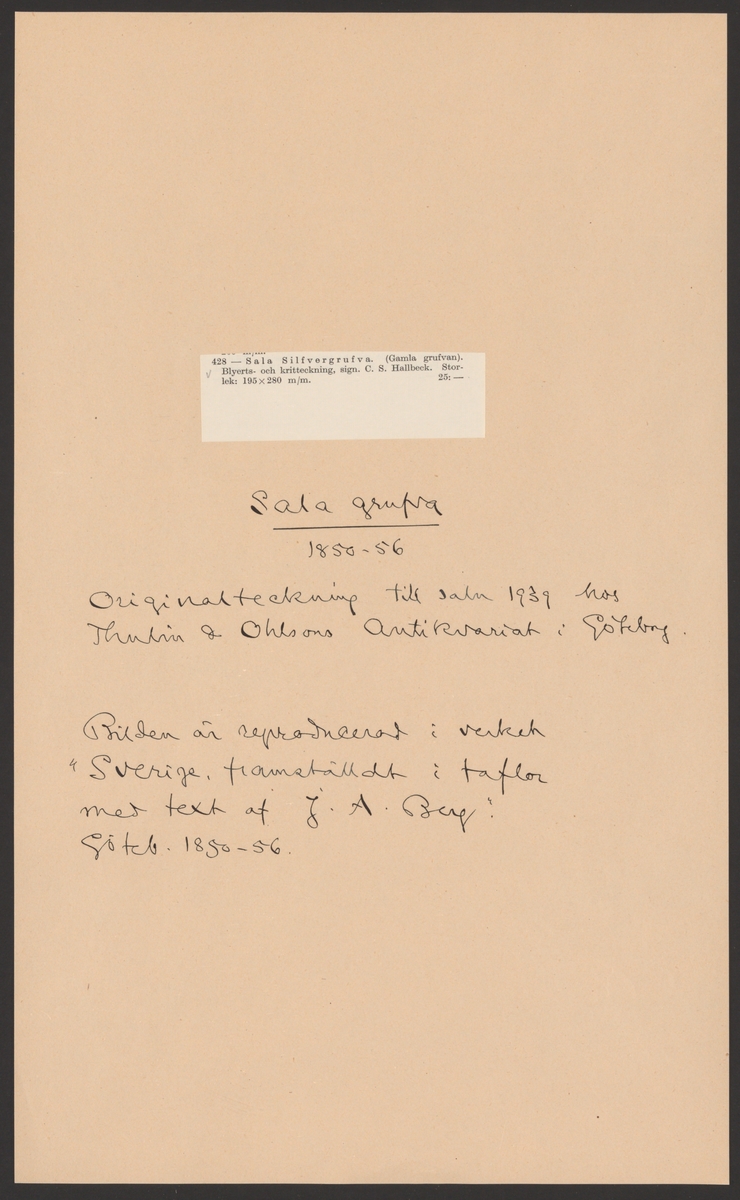 428 — Sala Silfvergrufva. (Gamla grufvan).
Blyerts- och kritteckning, sign. C. S. Hallbeck. Stor-
lek: 195×280 m/m. 25: —
Sala grufva
1850-56
Originalteckning till salu 1939 hos
Thulin & Ohlsons Antikvariat i Göteborg.
Bilden är reproducerad i verket
"Sverige, framställdt i taflor
med text af J. A. Berg".
Göteb. 1850-56.